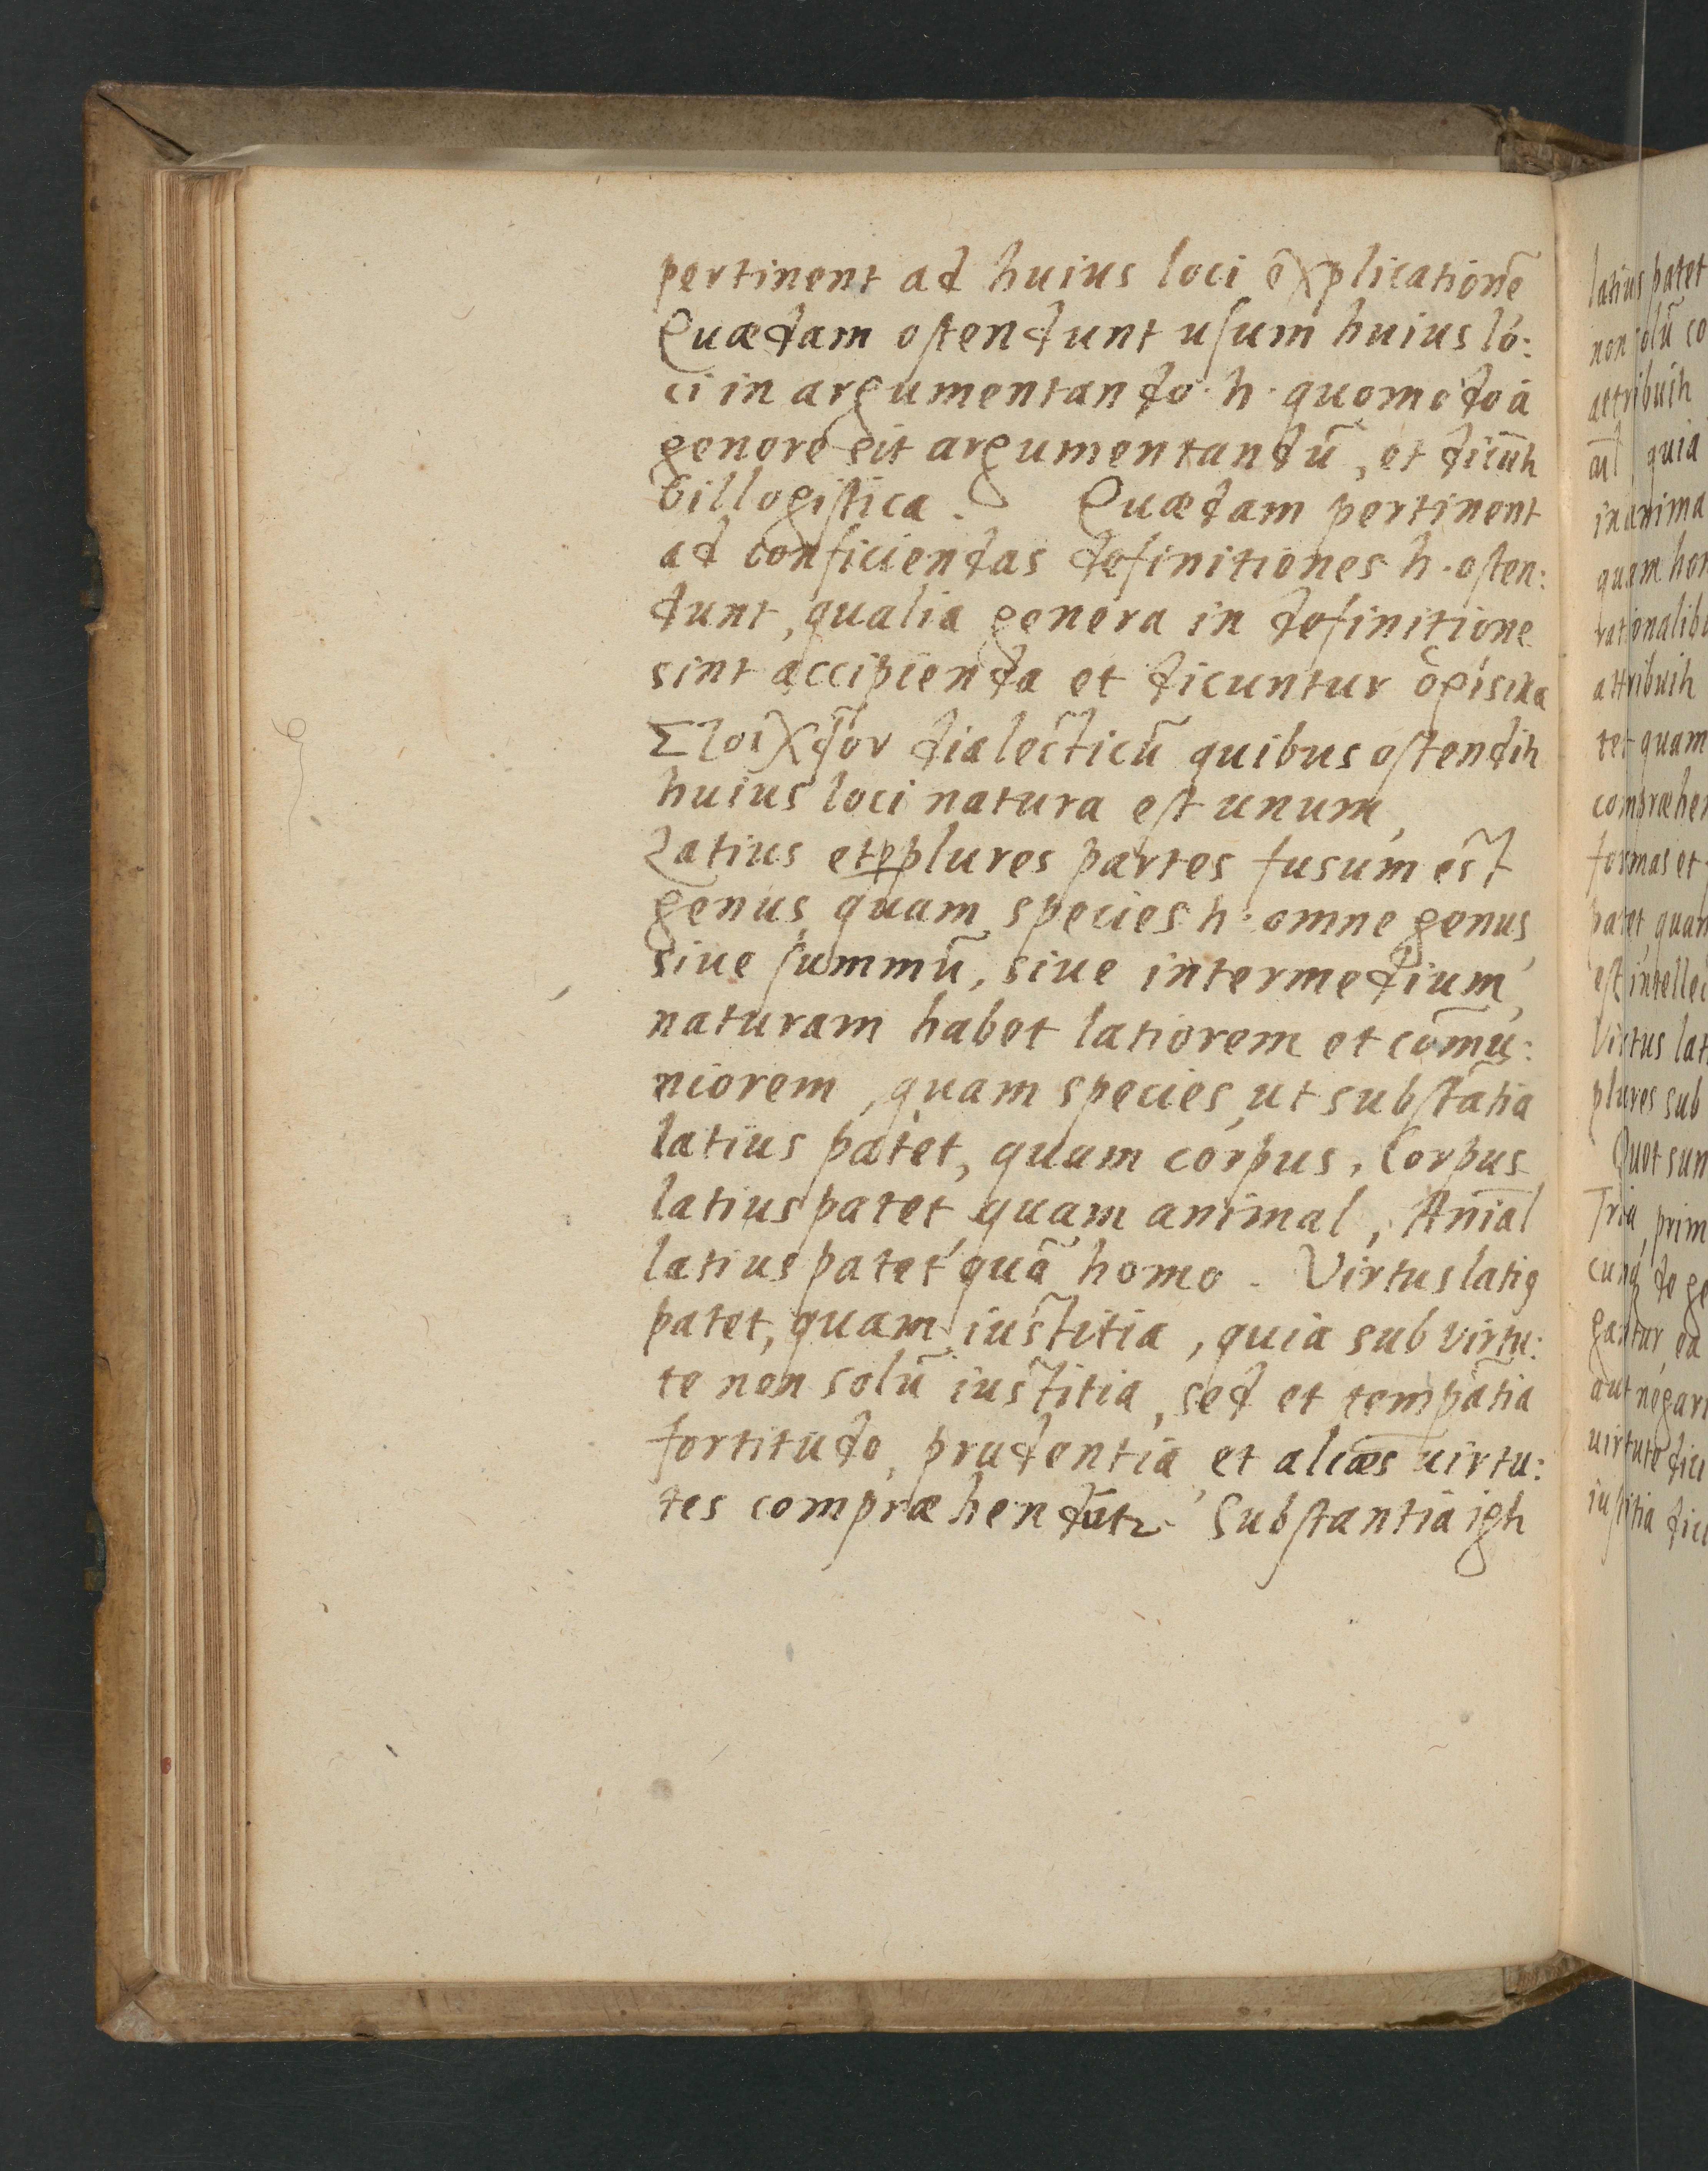 pertinent ad huius loci explicationē
Quædam ostendunt usum huius lo:
ci in argumentando · h · quomodo à
genere sit argumentandū, et dicūtr
Sillogistica. Quædam pertinent
ad conficiendas definitiones h · osten:
dunt, qualia genera in definitione
sint accipienda et dicuntur
dialecticū quibus ostenditr
huius loci natura est unum,
Latius et plures partes fusum est
genus quam species h · omne genus
siue summū, siue intermedium,
naturam habet latiorem et com̄u:
niorem, quam species, ut substātia
latius patet, quam corpus, Corpus
latius patet, quam animal, Anīal
latius patet quā homo. Virtus latiꝯ
patet, quam iustitia, quia sub virtu:
te non solū iustitia, sed et temp̄atia
fortitudo, prudentia, et aliæs uirtu:
tes compræhendūtr. Substantia igtr
latius patet
non solū co
attribuitr
aīl, quia
inanima
quam hom
rationalib
attribuitr
tet quam
compræhen
formas et
patet, quam
est intellec
Virtus lat
plures sub
Quot sun
Tria, prim
cunq de ge
gantur, ea
aut negari
uirtute dici
iustitia dici